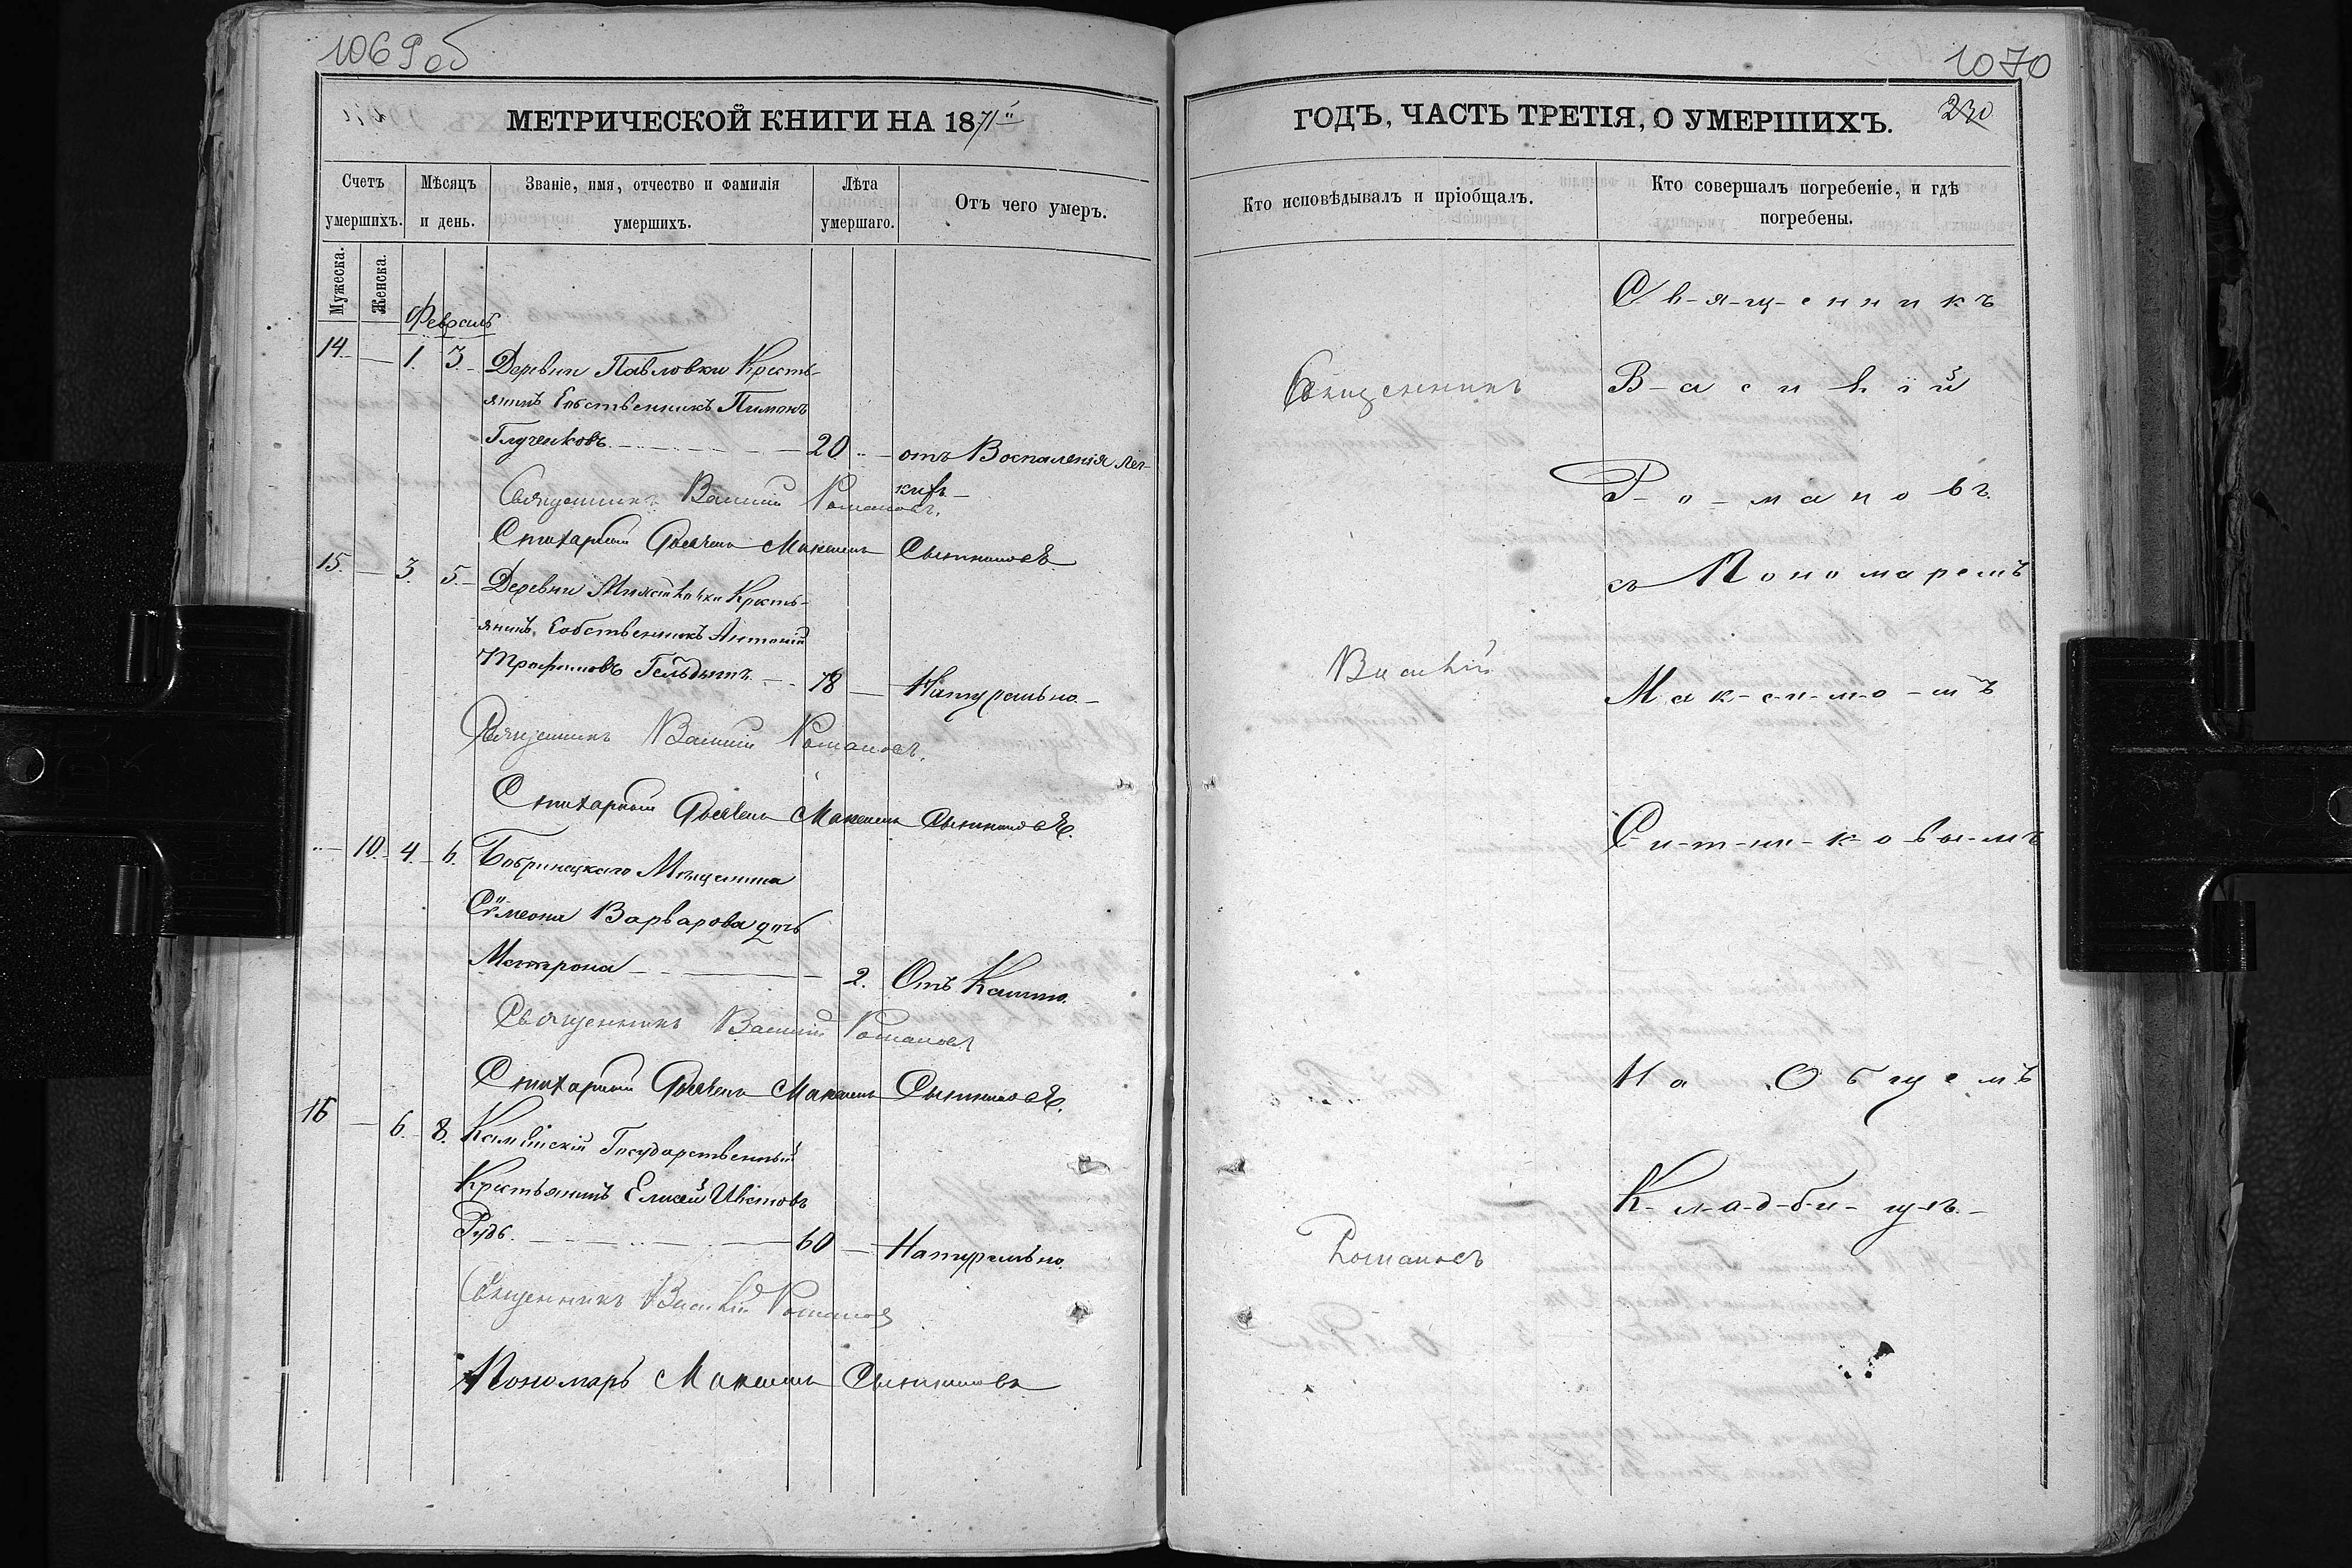 1069об
МЕТРИЧЕСКОЙ КНИГИ НА 1871й
Счетъ умершихъ.
Мужеска.
Женска.
Мѣсяцъ и день.
Званіе, имя, отчество и фамилія умершихъ.
Лѣта умершаго.
Отъ чего умеръ.
Февраль
14. — 1. 3. Деревни Павловки Кресть-
янинъ Собственникъ Пимонъ
Глученковъ. 20 отъ Воспаленія лег-
кихъ
Священникъ Василій Романовъ.
Стихарный Максимъ Сытниковъ
15. — 3. 5. Деревни Кресть-
янинъ Собственникъ Антоній
Трофимовъ 78 — Натурально
Священникъ Василій Романовъ.
Стихарный Максимъ Сытниковъ.
10. 4. 6. Бобринецкаго Мещанина
Сѵмеона Варварова дчь
Матрона 2. Отъ Кашлю.
Священникъ Василій Романовъ
Стихарный Максимъ Сытниковъ.
16 — 6. 8. Государственный
Крестьянинъ Елисей
Рудь. 60 — Натурально.
Священникъ Василій Романовъ
Пономарь Максимъ Сытниковъ
1070
ГОДЪ, ЧАСТЬ ТРЕТІЯ, О УМЕРШИХЪ.
230
Кто исповѣдывалъ и пріобщалъ.
Кто совершалъ погребеніе, и гдѣ погребены.
Священникъ
Василій
Романовъ
Священникъ
Василій
Романовъ
съ Пономаремъ
Максимомъ
Ситниковымъ
На Общемъ
Кладбищѣ.